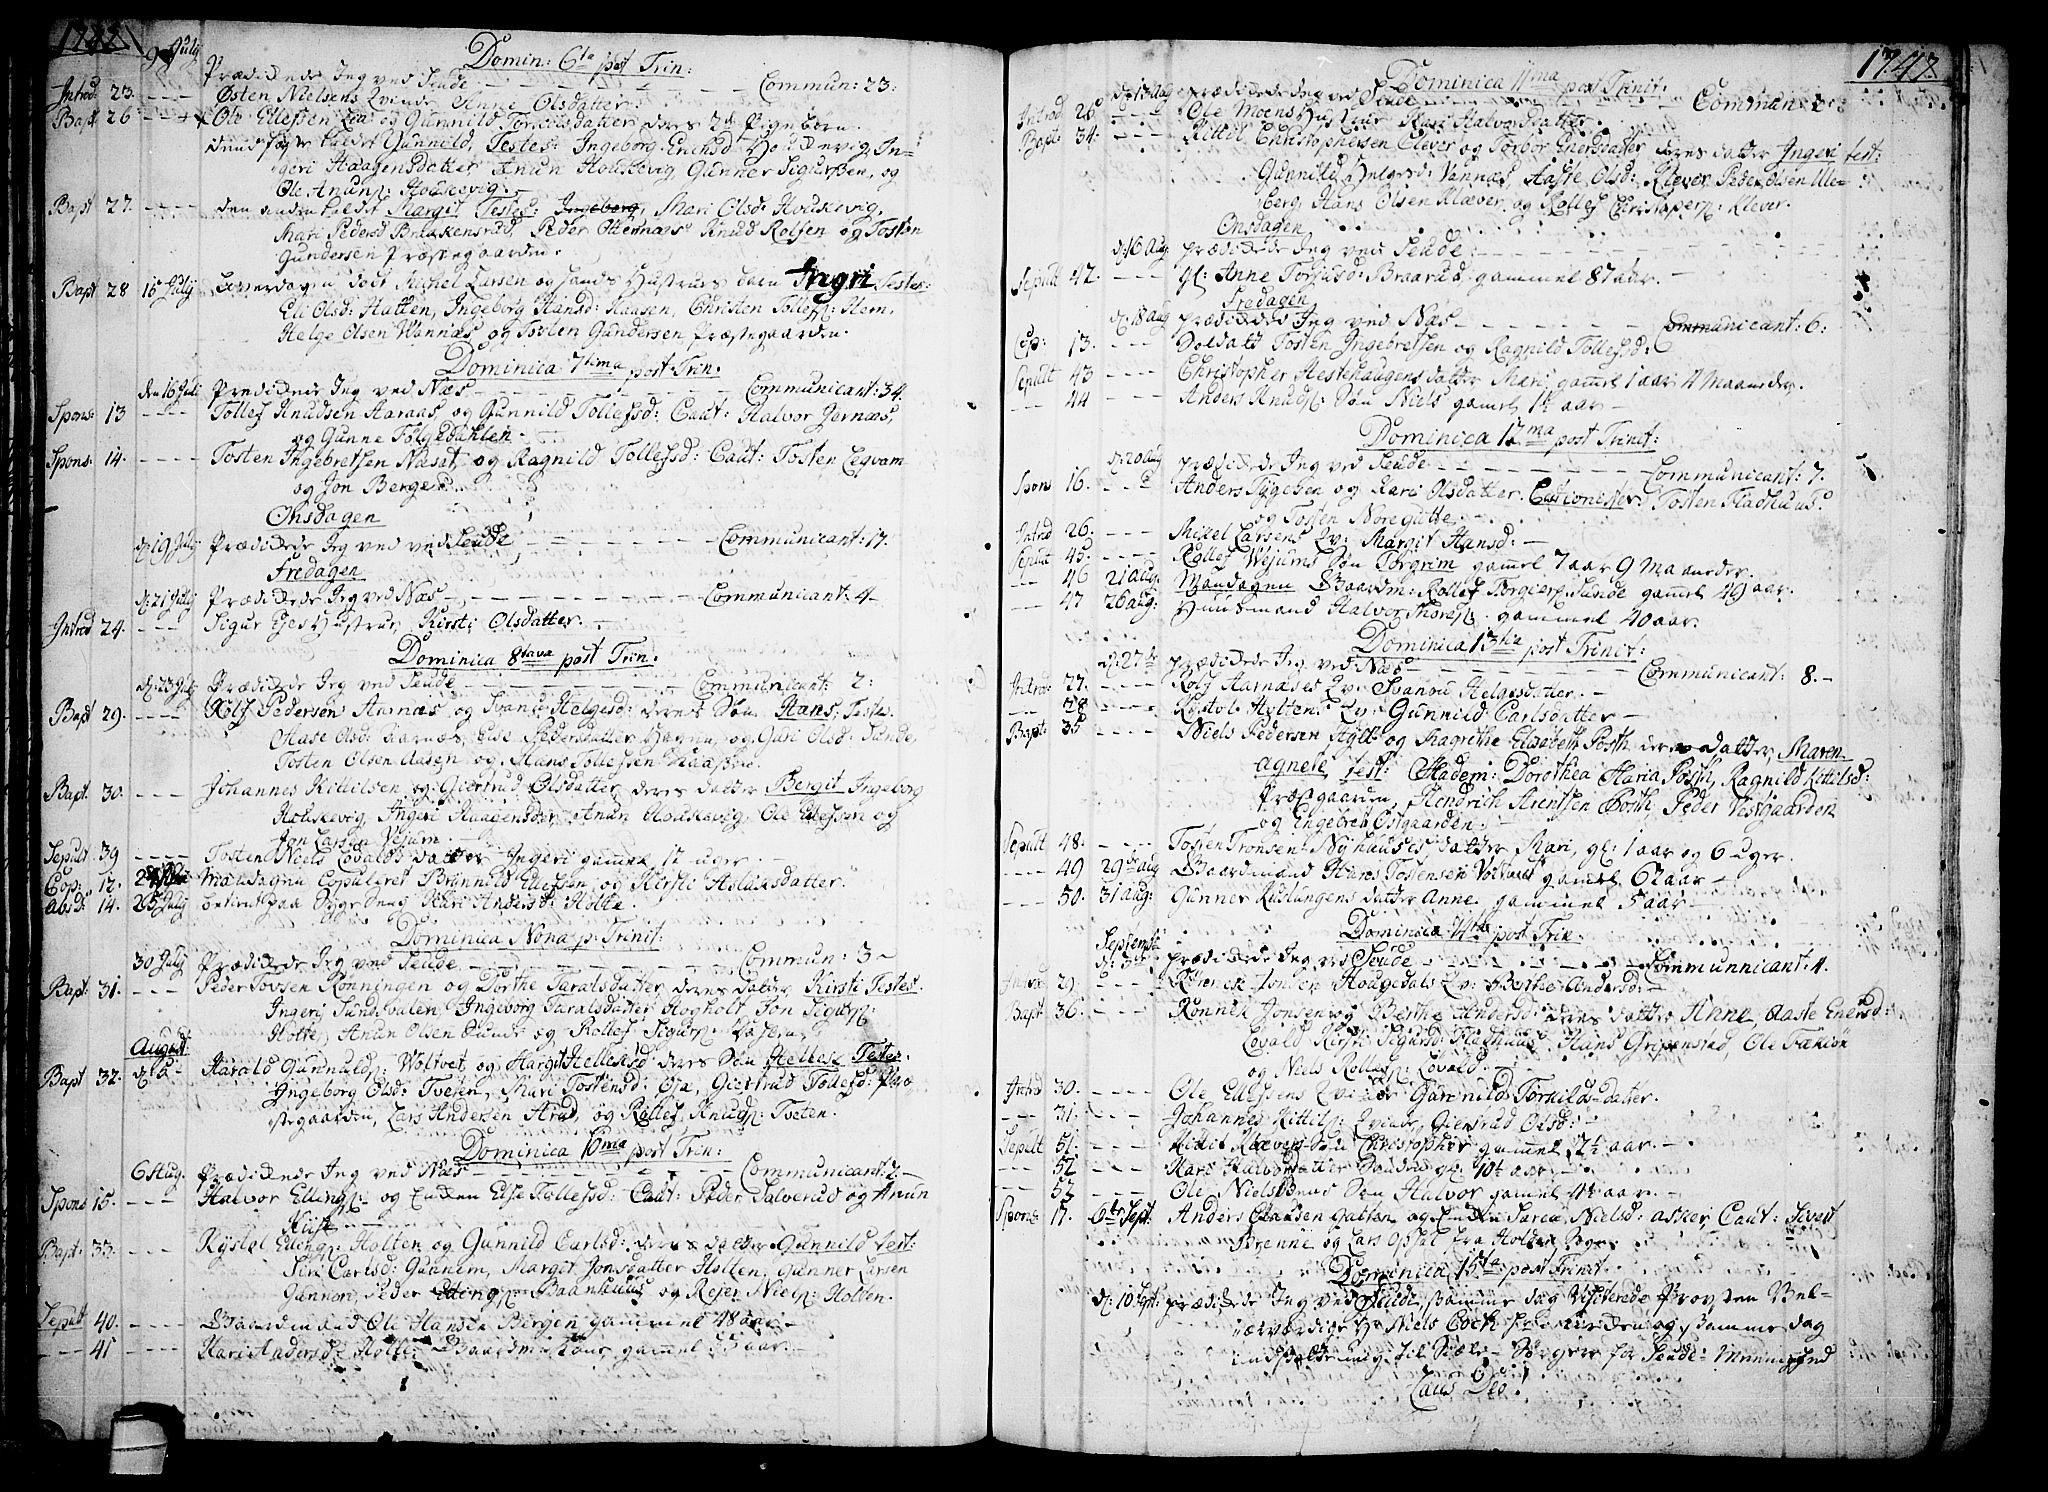 1747.
9 July Domin: 6ta post Trin:
Prædikede Jeg ved Seude - - - Commun: 23.
Introd: 23. - - - Østen Nielsens Qvinde Anne Olsdatter:
Bapt 26 - - - Ole Ellefsen Eja og Gunnild Torkildsdatter deres 2de Pigebørn
den første kaldet Gunnild, Testes: Ingeborg Enersd Houkevig, In-
geri Haagensdatter Anun Houkevig Gunner Sigursen, og
Ole Anuns: Houkevig.
Bapt 27. - - - den anden kaldet Margit Testes: Ingeborg, Mari Olsd: Houkevig,
Mari Pedersd Brækensrud, Peder Hernæs Knud Rolfsen og Tosten
Gundersen Præstegaarden.
Bapt 28 15 July Løverdagen døbt Michel Larsen og hands Hustrues barn Ingri Testes:
Eli Olsd: Hatten, Ingeborg Hansd: Haasen, Christen Tollefs: Hem,
Helge Olsen Wannæs og Tosten Gundersen Præstegaarden.
Dominica 7tima post Trin.
den 16 Juli Prædikede Jeg ved Næs - - - Communicant: 34.
Spons: 13 - - - Tollef Knudsen Aaraas og Gunnild Tollefsd: Caut: Halvor Jernæs,
og Gunne Følgedahlen
Spons: 14. - - - Tosten Ingebretsen Næsat og Ragnild Tollefsd: Caut: Tosten Eegvam
og Jon Bergen
Onsdagen
d: 19 July Prædikede Jeg ved ved Seude - - - Communicant: 17.
Fredagen
d: 21 July Prædikede Jeg ved Næs - - - Communicant: 4-
Introd 24. - - - Sigur Ejes Hustrue Kirsti Olsdatter.
Dominica 8tava post Trin:
d: 23 July Prædikede Jeg ved Seude - - - Communicant: 2:
Bapt 29. - - - Rolf Pedersen Aarnæs og Svanou Helgesd: deres Søn Hans, Testes
Aase Olsd: Aarnæs, Else Pedersdatter Hægna, og Guri Olsd: Sunde,
Tosten Olsen Aasen og Hans Tollefsen Haasen
Bapt. 30. - - - Johannes Kittilsen og Giertrud Olsdatter deres datter Bergit Ingeborg
Houkevig, Ingeri Haagensdtr, Anun Houkevig, Ole Ellefsen og
Jon Larsen Vejum.
Sepult 39 - - - Tosten Niels Lovalds datter Ingeri gamel 12 uger. -
Cop: 12. 24 July Mandagen Copuleret Brønnild Ellefsen og Kirsti Aslaksdatter.
14. 25 July betient paa Syge Seng Kari Andersd: Holte.
Dominica Nona p. Trinit:
30 July Prædikede Jeg ved Seude - - - Commun: 3 -
Bapt: 31. - - - Peder Tovsen Rønningen og Dorthe Taralsdatter deres datter Kirsti Testes:
Ingeri Sundsvalen Ingeborg Taralsdatter Hogholt Jon Sigurs:
Holte, Anun Olsen Sunde og Rollef Sigurs:
August
Bapt 32. d: 2 - Harald Gunnulds: Woltvet og Margit Hellesd: deres Søn Hellesk Testes:
Ingeborg Olsd: Tveten, Mari Tostensd: Eja, Giertrud Tollefsd: Præ-
stegaarden, Lars Andersen Arud, og Rollef Knuds: Tveten.
Dominica 10ma post Trin:
6 Aug. Prædikede Jeg ved Næs - - - Communicant: 2 -
Spons 15. - - - Halvor Ellings: og Enken Else Tollefsd: Caut: Peder Salverud og Anun
Bapt: 33. - - - Kystel Ellings: Holten og Gunnild Carlsd: deres datter Gunnild test:
Siri Carlsd: Gunnem, Margit Jonsdatter Holten, Gunner Larsen
Gunnon, Peder Ellings: Baanhuus og Rejer Niels: Holten.
Sepult 40. - - - Gaardmand Ole Hansen Bergen gammel 48 aar -
- - - 41 - - - Kari Andersd: Holte, Gaardmds kone, gammel 55 aar. -
1747.
Dominica 11ma post Trinit:
d: 13 Aug Prædikede Jeg ved Seude Communicant
Introd 25 - - - Ole Moens Hustrue Kari Halvorsdatter.
Bapt 34. - - - Kittil Christophersen Clever og Torbor Enersdatter, deres datter Ingeri test:
Gunnild Helgesd: Vannæs, Aaste Olsd: Klever Peder Olsen Ule-
berg, Hans Olsen Klæver, og Rollef Christophers: Klever.
Onsdagen
d: 16 Aug prædikede Jeg ved Seude
Sepult 42. - - - gl: Anne Torjusd: Braarud, gammel 87 aar. -
Fredagen
d: 18 aug prædikede Jeg ved Næs - - - Communicant: 6:
Cop: 13. - - - Soldat Tosten Ingebretsen og Ragnild Tollefsd:
Sepult 43 - - - Christopher Hestehaugens datter Mari, gamel 1 aar 4 Maaneder.
- - - 44 - - - Anders Knuds: Søn Niels gamel 1½ aar -
Dominica 12ma post Trinit:
d: 20 aug prædikede Jeg ved Seude - - - Communicant: 7.
Spons 16. - - - Anders Tygesen og Kari Olsdatter. Cautionister Tosten Fladhuus
og Tosten Noregutte.
Introd 26. - - - Mikel Larsens Qv: Margit Hansd: -
Sepult 45. - - - Rollef Wejums Søn Torgrim gamel 7 aar 9 Maaneder.
- - 46 21 aug: Mandagen Gaardm: Rollef Torgiers: Sunde gamel 49 aar.
- - 47 26 aug: Huusmand Halvor Thores: gammel 40 aar.
Dominica 13tia post Trinit:
d: 27de prædikede Jeg ved Næs - - - Communicant: 8. -
Introd: 27. - - - Rolf Aarnæses Qv: Svanou Helgesdatter. -
- - 28. - - - Kystel Holten: Qv: Gunnild Carlsdatter -
Bapt: 35 - - - Niels Pedersen og Magrethe Elisabeth Posth deres datter, Maren
Agnete test: Madem: Dorothea Maria Posth, Ragnild Kittilsd:
Præstgaarden, Hendrich Arentsen Posth, Peder Vestgaarden
og Engebret Østgaarden.
Sepult 48. - - - Tosten Tronsen Nyhuuses datter Mari, gl: 1 aar og 6 uger.
- - 49 29de aug Gaardmand Hans Tostensen Voltvet gamel 62 aar -
- - 50. 31 aug: Gunner Kislungens datter Anne gammel 5 aar
Dominica 14ta post Trin.
Septemb:
d: 3die prædikede Jeg ved Seude - - - Communnicant: 4.
Introd 29. - - - Rønnek Jonsen Hougedals Qv: Berthe Andersd: -
Bapt 36. - - - Rønnek Jonsen og Berthe Andersd: deres datter Anne Aaste Enersd:
Lovald Kirsti Sigursd Fladhuus, Hans Gripenstad, Ole
og Niels Rollefs: Lovald.
Introd 30. - - - Ole Ellefsens Qvinde Gunnild Torkilds-datter.
- - 31. - - - Johannes Kittils: Qvinde Giertrud Olsd: -
Sepult 51. - - - Kittil Klævers Søn Christopher gammel 2½ aar. -
- - 52 - - - Kari Halvorsdatter Sunde gl: 10½ aar. -
- - 53 - - - Ole Niels Søn Halvor gamel aar. -
Spons: 17. 6te Sept: Anders Clausen Hatten og Enken Sarea Nielsd: Asker Caut: Sivert
Brenne og Lars Opsal fra Holden Bøgn.
Dominica 15ta post Trinit
d: 10 Sept: prædikede Jeg ved Seude, Samme dag Visiterede Provsten Vel-
ærværdige Hr Niels Cock her i Kirken og Samme dag
indsatte mig til Siæle-Sørger for Seude-Meenighed
Laus Deo.